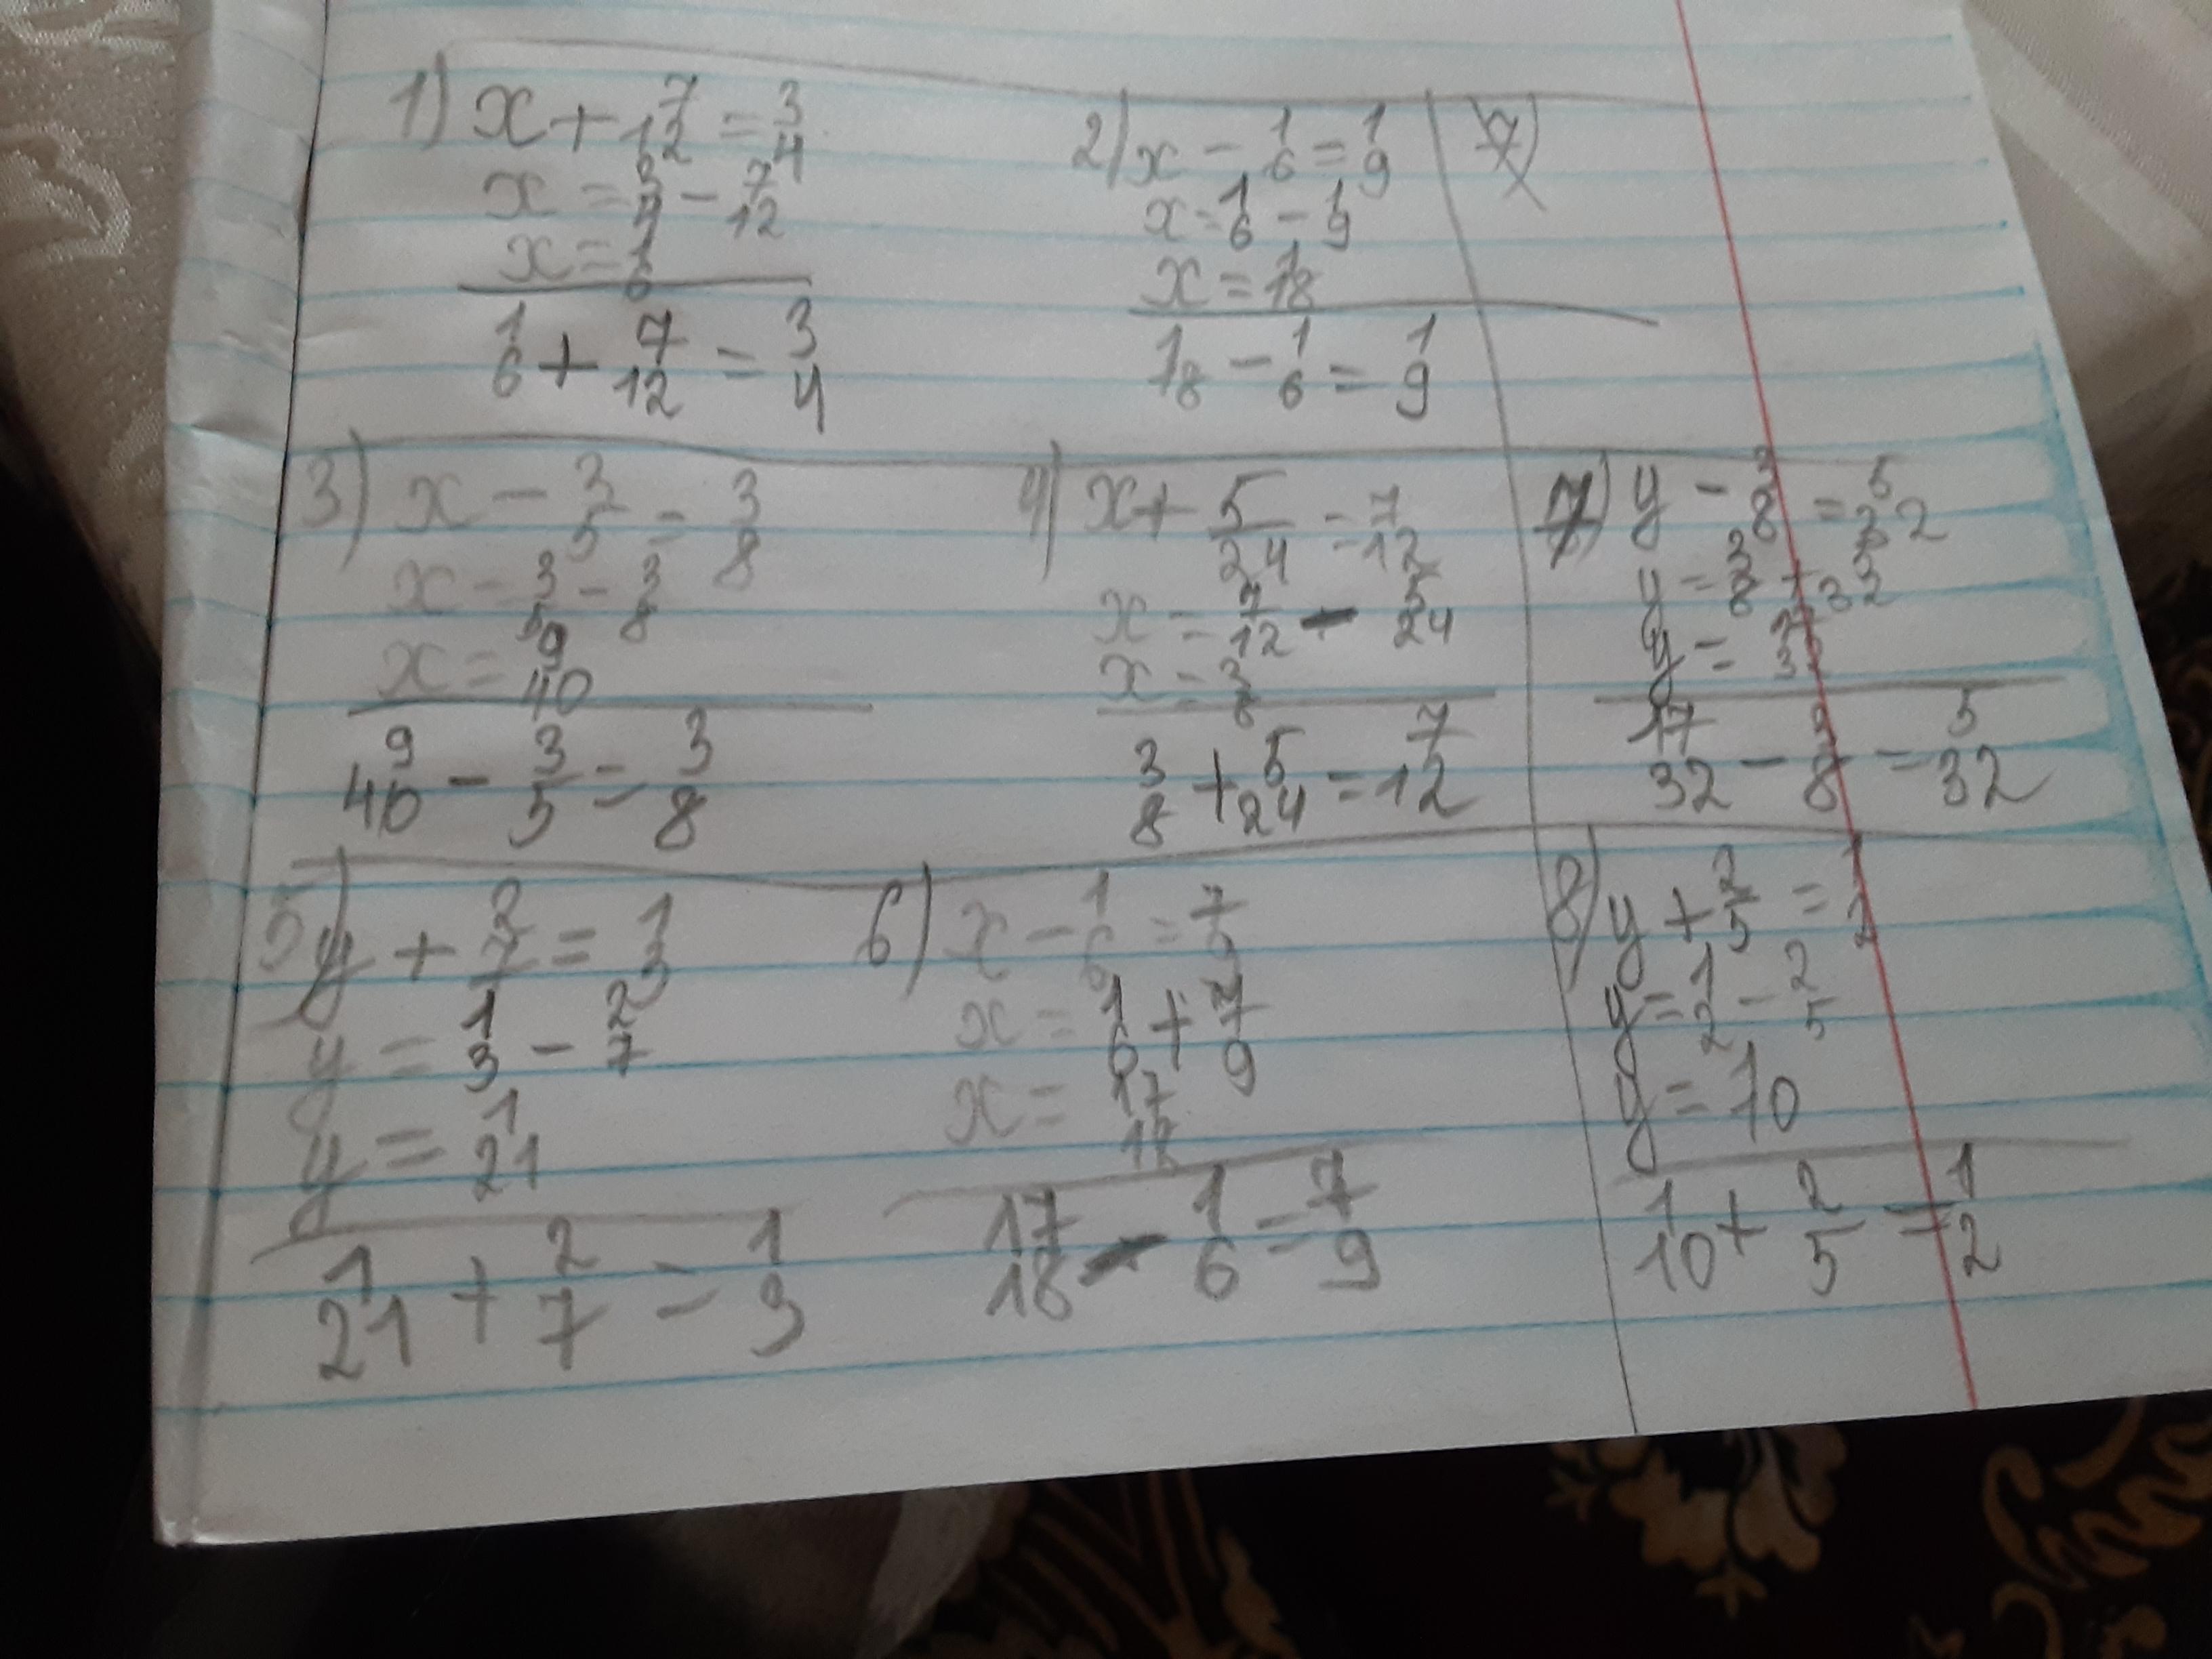 1) x + 7/12 = 3/4
x = 3/4 - 7/12
x = 1/6
1/6 + 7/12 = 3/4
2) x - 1/6 = 1/9
x = 1/6 - 1/9
x = 1/18
1/18 - 1/6 = 1/9
3) x - 3/5 = 3/8
x = 3/5 - 3/8
x = 9/40
9/40 - 3/5 = 3/8
4) x + 5/24 = 7/12
x = 7/12 - 5/24
x = 3/8
3/8 + 5/24 = 7/12
7) y - 3/8 = 5/32
y = 3/8 + 5/32
y = 17/32
17/32 - 3/8 = 5/32
5) y + 2/7 = 1/3
y = 1/3 - 2/7
y = 1/21
1/21 + 2/7 = 1/3
6) x - 1/6 = 7/9
x = 1/6 + 7/9
x = 17/18
17/18 - 1/6 = 7/9
8) y + 2/5 = 1/2
y = 1/2 - 2/5
y = 1/10
1/10 + 2/5 = 1/2